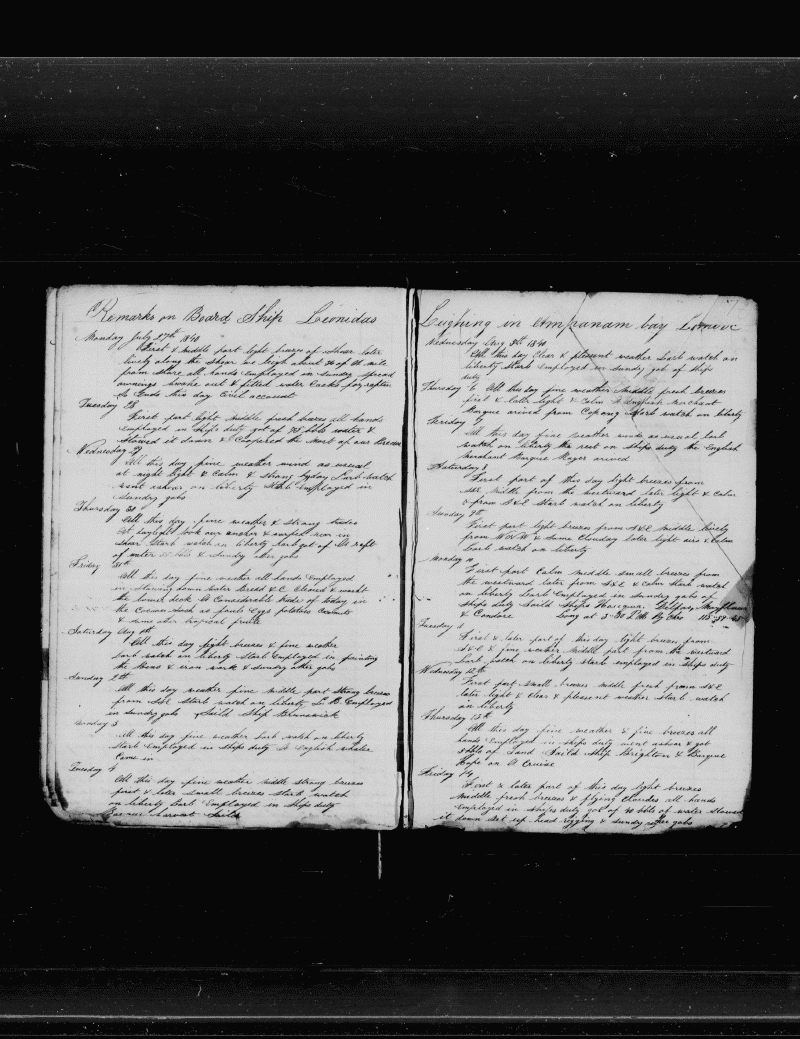 Remarks on Board Ship Leonidas
Monday July 27th 1840
First & middle part light breezes of Shear later
lively along the Shear in
from Shore all hands Employed in Sundry Spread
ownings broke out & filled water Casks for
So Ends this day Civil account
Tuesday 28
First part light Middle good breezes all hands
Employed in Ships duty got of 75 bbls water &
Stowed it down & Coopered the Most of our
Wednesday 29
All this day fine weather wind as usual
at night light & Calm & strong by day Larb watch
went ashear on liberty Starb Employed in
Sundry gobs
Thursday 30
All this day fine weather & strong trades
At daylight took our anchor & run in
Shear Starb watch on liberty Larb got of
of water & Sundry other gobs
Friday 31th
All this day fine weather all hands Employed
in Stowing down water bread &C Cleaned & washt
the lower deck A Considerable trade of today in
the Cocoan Such as fouls Eggs potatoes
& some other tropical fruits
Saturday Aug 1th
All this day light breezes & fine weather
Larb watch on liberty Starb Employed in painting
the Boats & iron work & Sundry other gobs
Sunday 2th
All this day weather fine middle part Strong breezes
from SSE Starb watch on liberty L. B. Employed
in Sundry gobs Saild Ship Brunswick
Monday 3
All this day fine weather Larb watch on liberty
Starb Employed in Ships duty A English whaler
Came in
Tuesday 4
All this day fine weather middle strong breezes
first & later small breezes Starb watch
on liberty Larb Employed in Ships duty
Saild
Leighing in Ampanam bay
Wednesday Aug 5th 1840
All this day Clear & plesent weather Larb watch on
liberty Starb Employed in Sundry gobs of Ships
duty
Thursday 6 All this day fine weather Middle fresh breezes
first & later light & Calm A English Merchant
Barque arived from Copang Starb watch on liberty
Fryday 7
All this day fine weather winds as usual Larb
watch on liberty the rest on Ships duty the English
Merchant Barque Mayer arived
Saturday 8
First part of this day light breezes from
SSE Middle from the westward later light & Calm
& from S&E Starb watch on liberty
Sunday 9th
First part light breezes from S&E Middle lively
from W&W & some Clouday later light airs & Calm
Larb watch on liberty
Monday 10
First part Calm middle small breezes from
the westward later from S&E & Calm Starb watch
on liberty Larb Employed in Sundry gobs of
Ships duty Saild Ships Hoacqua Delfos Mayflower
& Condore Long at 3-30 P.M. By Chro 115-59-45
Tuesday 11
First & later part of this day light breezes from
S&E & fine weather middle part from the westward
Larb watch on liberty Starb employed in Ships duty
Wednesday 12th
First part small breezes middle fresh from S&E
later light & Clear & plesent weather Starb watch
on liberty
Thursday 13th
All this day fine weather & fine breezes all
hands Employed in Ships duty went ashear & got
5 bbls of Sand Saild Ship Brighton & Barque
Hope on A Cruise
Friday 14
First & later part of this day light breezes
Middle fresh breezes & flying Clouds all hands
Employed in Ships duty got of 70 bbls of water Stowed
it down Set up head rigging & Sundry other gobs